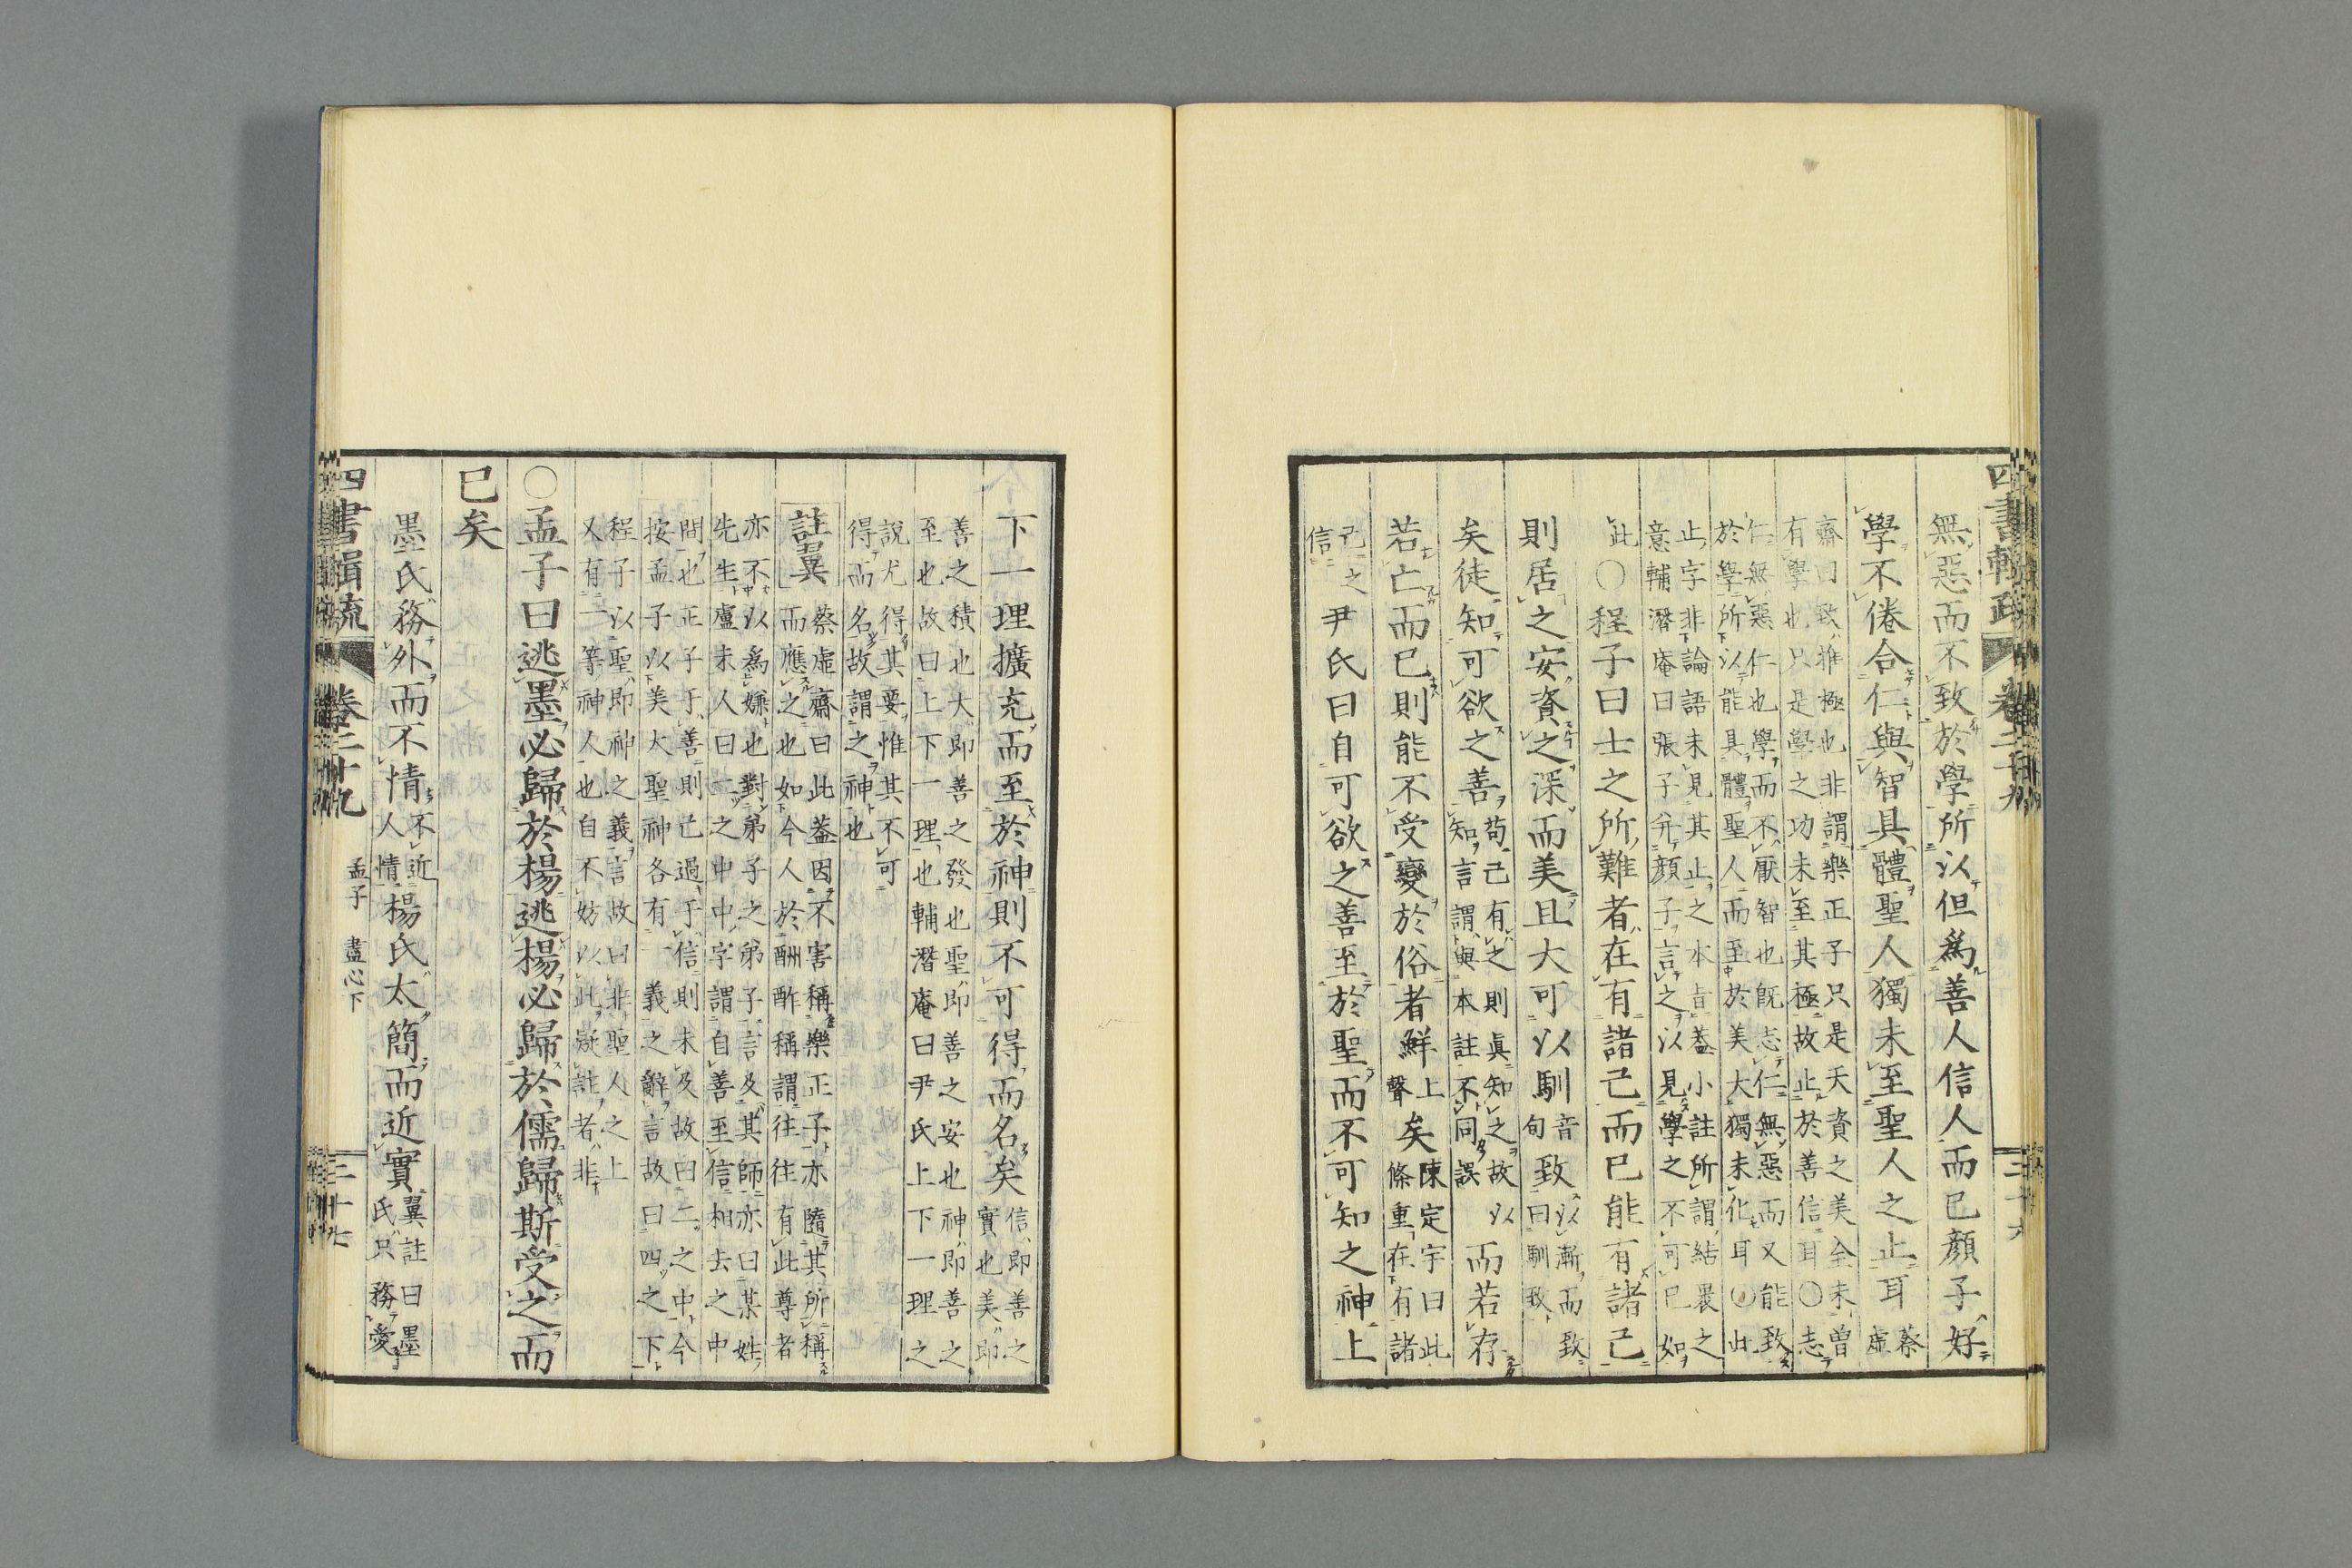 四書輯疏 卷二十九
無惡而不致於學所以但爲善人信人而已顏子好
學不倦合仁與智具體聖人獨未至聖人之止耳 蔡虛
齋曰致推極也非謂樂正子只是天資之美全未曾
有學也只是學之功未至其極故止於善信耳〇志
仁無惡仁也學而不厭智也旣志仁無惡而又能致
於學所以能具體聖人而至於美大獨未化耳〇此
止字非論語未見其止之本旨蓋小註所謂結裹之
意輔潛庵曰張子幷顏子言之以見學之不可已如
此〇程子曰士之所難者在有諸己而已能有諸己
則居之安資之深而美且大可以馴 音句 致 以漸而致曰馴致
矣徒知可欲之善 苟己有之則眞知之故以知言謂與本註不同誤 而若存
若亡而已則能不受變於俗者鮮 上聲 矣 陳定宇曰此條重在有諸
己之信 尹氏曰自可欲之善至於聖而不可知之神上
下一理擴充而至於神則不可得而名矣 信即善之實也美即
善之積也大即善之發也聖即善之安也神即善之
至也故曰上下一理也輔潛庵曰尹氏上下一理之
說尤得其要惟其不可
得而名故謂之神也
註翼 蔡虛齋曰此蓋因不害稱樂正子亦隨其所稱
而應之也如今人於酬酢稱謂往往有此尊者
亦不以爲嫌也對弟子之弟子言及其師亦曰某姓
先生盧未人曰二之中中字謂自善至信相去之中
間也正子于善則已過于信則未及故曰二之中今
按孟子以美大聖神各有一義之辭言故曰四之下
程子以聖即神之義言故曰非聖人之上
又有一等神人也自不妨以此疑註者非
〇孟子曰逃墨必歸於楊逃楊必歸於儒歸斯受之而
已矣
墨氏務外而不情 不近人情 楊氏太簡而近實 翼註曰墨氏只務愛
四書輯疏 卷二十九 孟子 盡心下 二十七